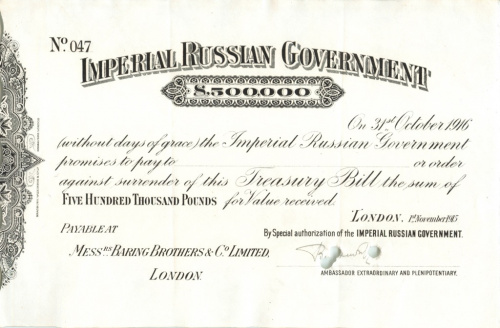 No. 047
IMPERIAL RUSSIAN GOVERNMENT
£.500,000
On 31st October 1916
(without days of grace) the Imperial Russian Government
promises to pay to or order
against surrender of this Treasury Bill the sum of
FIVE HUNDRED THOUSAND POUNDS for Value received.
LONDON. 1st November 1915
PAYABLE AT
MESSRS BARING BROTHERS & CO LIMITED,
LONDON.
By Special authorization of the IMPERIAL RUSSIAN GOVERNMENT.
AMBASSADOR EXTRAORDINARY AND PLENIPOTENTIARY.